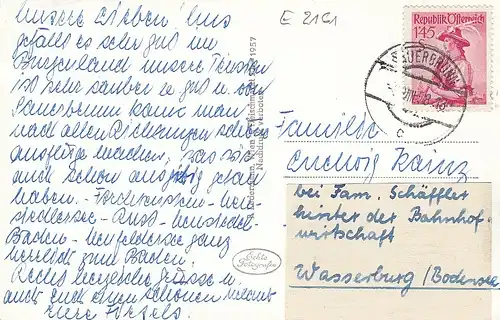 Unsere Lieben! Uns
gefällt es sehr gut im
Burgenland unsere Pension
ist sehr sauber u. gut u. von
Sauerbrunn kann man
nach allen Richtungen schöne
Ausflüge machen, was wir
auch schon ausgiebig getan
haben. Forchtenstein - Neu-
siedlersee - Rust -
Baden - Neufeldersee ganz
herrlich zum Baden.
Recht herzliche Grüsse u.
auch Euch einen schönen Urlaub
Eure
E 2161
Republik Österreich
1.45
S
SAUERBRUNN
c
Nachdruck verboten
1957
Echte
Fotografie
Familie
Ludwig Kainz
bei Fam. Schäffler
hinter der Bahnhof-
wirtschaft
Wasserburg /Bodensee